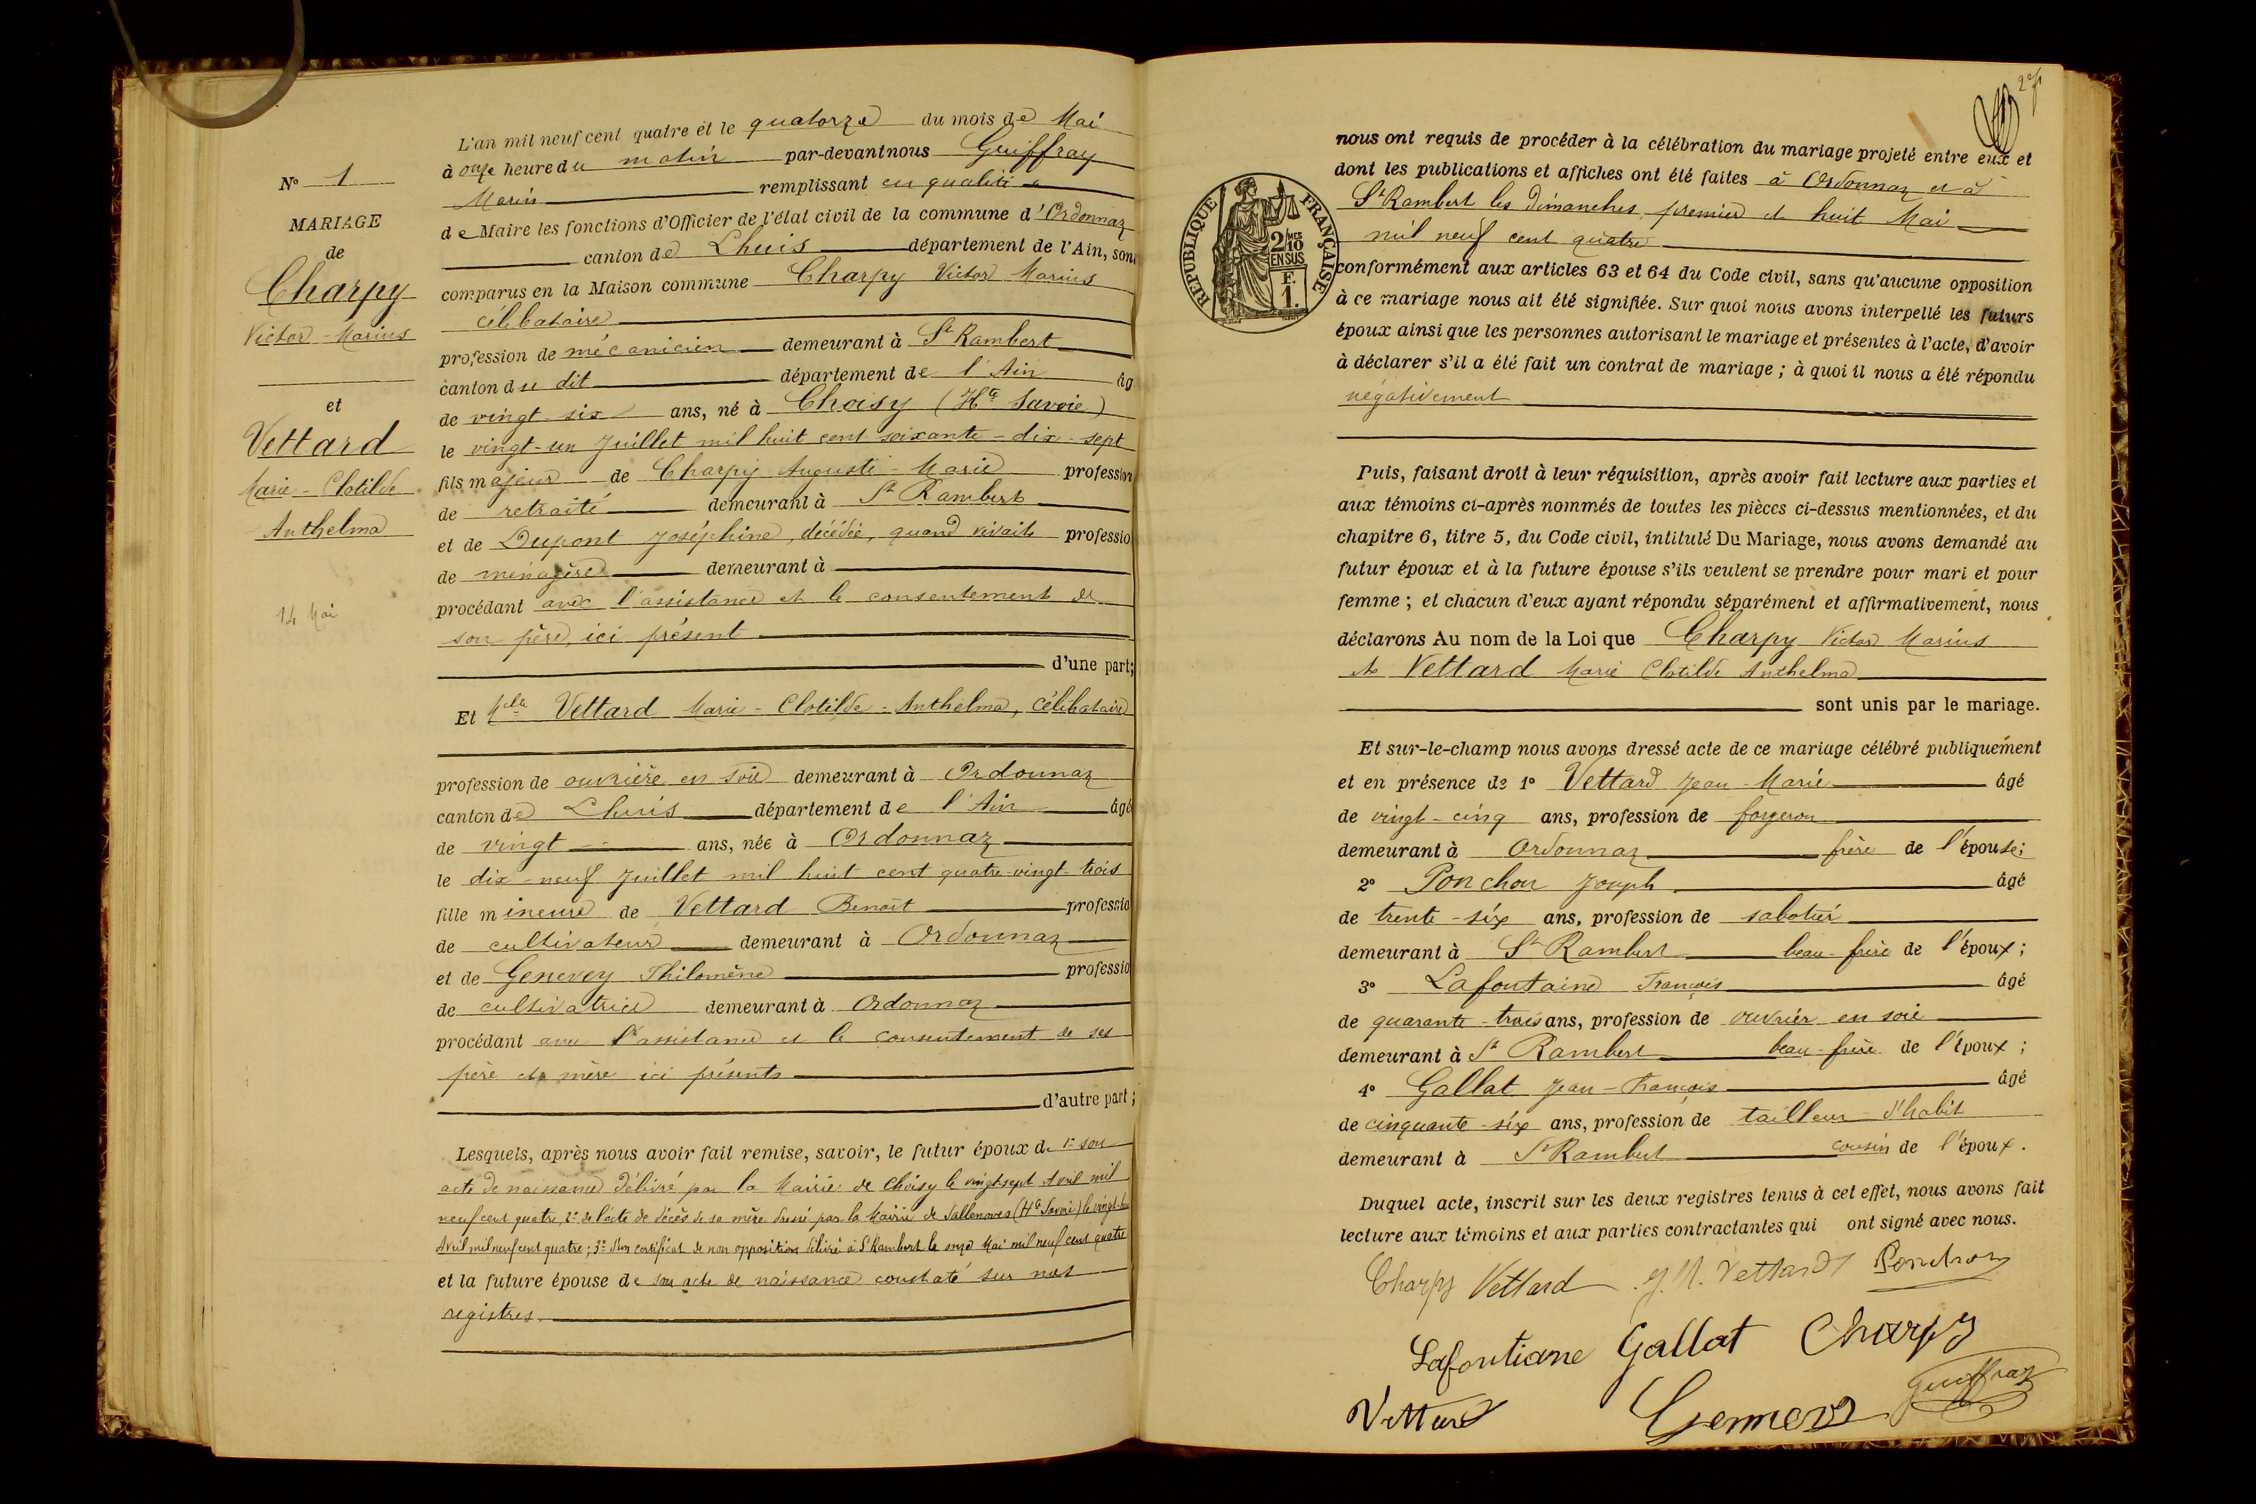 N° 1
MARIAGE
de
Charpy
Victor-Marius
et
Vettard
Marie-Clotilde
Anthelma
14 Mai
L'an mil neuf cent quatre et le quatorze du mois de Mai
à onze heure du matin par-devant nous Guiffray
Marin remplissant en qualité
de Maire les fonctions d'Officier de l'état civil de la commune d'Ordonnaz
canton de Lhuis département de l'Ain, sont
comparus en la Maison commune Charpy Victor Marius
célibataire
profession de mécanicien demeurant à St Rambert
canton du dit département de l'Ain âg
de vingt-six ans, né à Choisy (Hte Savoie)
le vingt-un Juillet mil huit cent soixante-dix-sept
fils majeur de Charpy Auguste-Marie profession
de retraité demeurant à St Rambert
et de Dupont Joséphine, décédée, quand vivait professio
de ménagère demeurant à
procédant avec l'assistance et le consentement de
son père, ici présent
d'une part;
Et Melle Vettard Marie-Clotilde-Anthelma, célibataire
profession de ouvrière en soie demeurant à Ordonnaz
canton de Lhuis département de l'Ain âgé
de vingt ans, née à Ordonnaz
le dix-neuf Juillet mil huit cent quatre-vingt-trois
fille mineure de Vettard Benoît professio
de cultivateur demeurant à Ordonnaz
et de Genevey Philomène professio
de cultivatrice demeurant à Ordonnaz
procédant avec l'assistance et le consentement de ses
père et mère ici présents
d'autre part;
Lesquels, après nous avoir fait remise, savoir, le futur époux de 1° son
acte de naissance délivré par la Mairie de Choisy le vingt-sept Avril mil
neuf cent quatre, 2° de l'acte de décès de sa mère dressé par la Mairie de Sallenoves (Hte Savoie) le vingt-
Avril mil neuf cent quatre; 3° d'un certificat de non opposition délivré à St Rambert le onze Mai mil neuf cent quatre
et la future épouse de son acte de naissance constaté sur nos
registres.
2
RÉPUBLIQUE FRANÇAISE
2/10 MES
EN SUS
F.
1.
nous ont requis de procéder à la célébration du mariage projeté entre eux et
dont les publications et affiches ont été faites à Ordonnaz et à
St Rambert les dimanches premier et huit Mai
mil neuf cent quatre
conformément aux articles 63 et 64 du Code civil, sans qu'aucune opposition
à ce mariage nous ait été signifiée. Sur quoi nous avons interpellé les futurs
époux ainsi que les personnes autorisant le mariage et présentes à l'acte, d'avoir
à déclarer s'il a été fait un contrat de mariage; à quoi il nous a été répondu
négativement
Puis, faisant droit à leur réquisition, après avoir fait lecture aux parties et
aux témoins ci-après nommés de toutes les pièces ci-dessus mentionnées, et du
chapitre 6, titre 5, du Code civil, intitulé Du Mariage, nous avons demandé au
futur époux et à la future épouse s'ils veulent se prendre pour mari et pour
femme; et chacun d'eux ayant répondu séparément et affirmativement, nous
déclarons Au nom de la Loi que Charpy Victor Marius
et Vettard Marie Clotilde Anthelma
sont unis par le mariage.
Et sur-le-champ nous avons dressé acte de ce mariage célébré publiquement
et en présence de 1° Vettard Jean-Marie âgé
de vingt-cinq ans, profession de forgeron
demeurant à Ordonnaz frère de l'épouse;
2° Ponchon Joseph âgé
de trente-six ans, profession de sabotier
demeurant à St Rambert beau-frère de l'époux;
3° Lafontaine François âgé
de quarante-trois ans, profession de ouvrier en soie
demeurant à St Rambert beau-frère de l'époux;
4° Gallat Jean-François âgé
de cinquante-six ans, profession de tailleur d'habit
demeurant à St Rambert cousin de l'époux.
Duquel acte, inscrit sur les deux registres tenus à cet effet, nous avons fait
lecture aux témoins et aux parties contractantes qui ont signé avec nous.
Charpy Vettard J. M. Vettard Ponchon
Lafontiane Gallat Charpy
Vettard Gennevey Guiffray